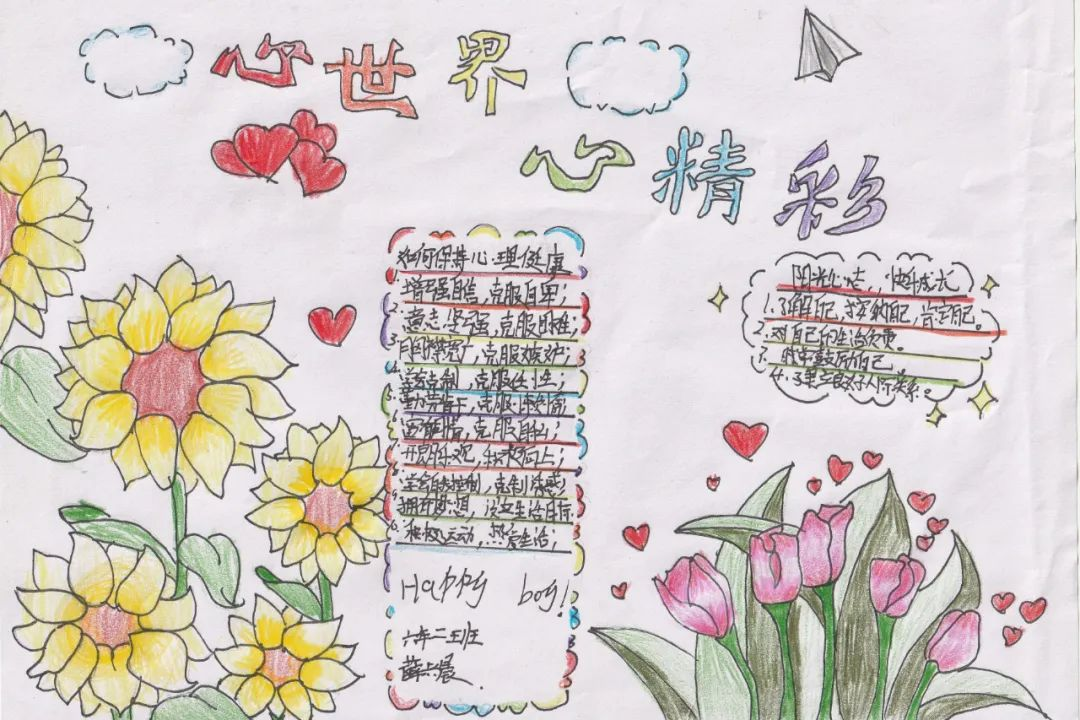 心世界
心精彩
如何保持心理健康
1. 增强自信，克服自卑；
2. 意志坚强，克服困难；
3. 胸襟宽广，克服嫉妒；
4. 学会克制，克服任性；
5. 勤劳肯干，克服
克服自私；
开朗乐观，积极向上；
学会自我控制，克制
拥有思想，设立生活目标
积极运动，热爱生活；
Happy boy!
六年二班
阳光心态，快乐成长
1. 了解自己，接纳自己，肯定自己。
2. 对自己的生活负责。
3. 鼓励自己
4. 建立良好人际关系。